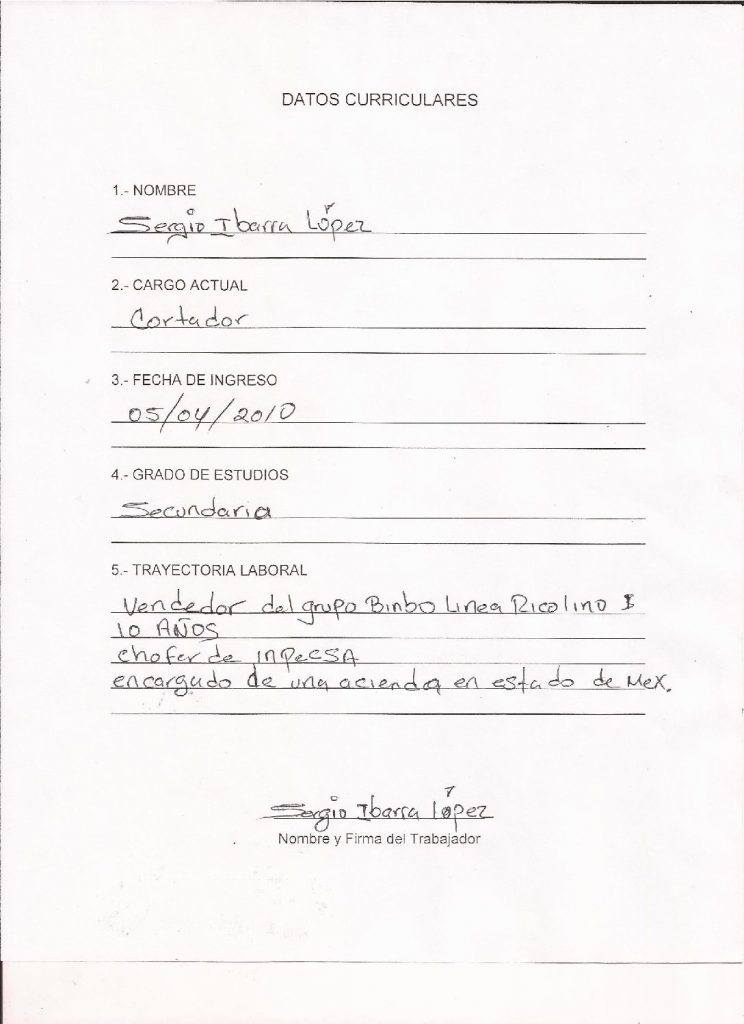 DATOS CURRICULARES
1.- NOMBRE
Sergio Ibarra López
2.- CARGO ACTUAL
Cortador
3.- FECHA DE INGRESO
05/04/2010
4.- GRADO DE ESTUDIOS
Secundaria
5.- TRAYECTORIA LABORAL
Vendedor del grupo Binbo Linea Ricolino
10 AÑOS
chofer de INPECSA
encargado de una acienda en estado de Mex.
Sergio Ibarra lópez
Nombre y Firma del Trabajador